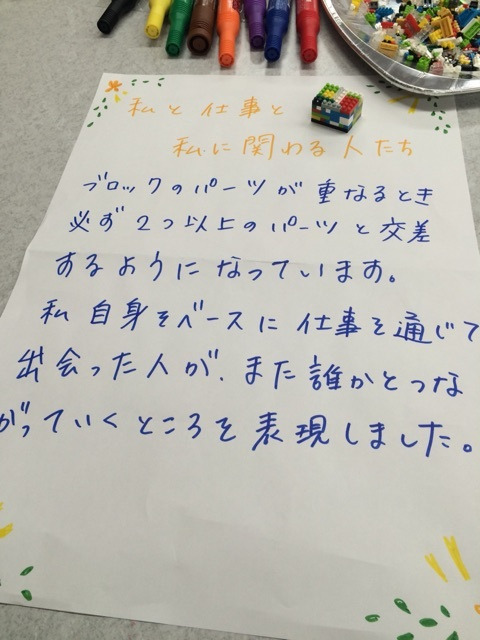 私と仕事と
私に関わる人たち
ブロックのパーツが重なるとき
必ず2つ以上のパーツと交差
するようになっています。
私自身をベースに仕事を通じて
出会った人が、また誰かとつな
がっていくところを表現しました。